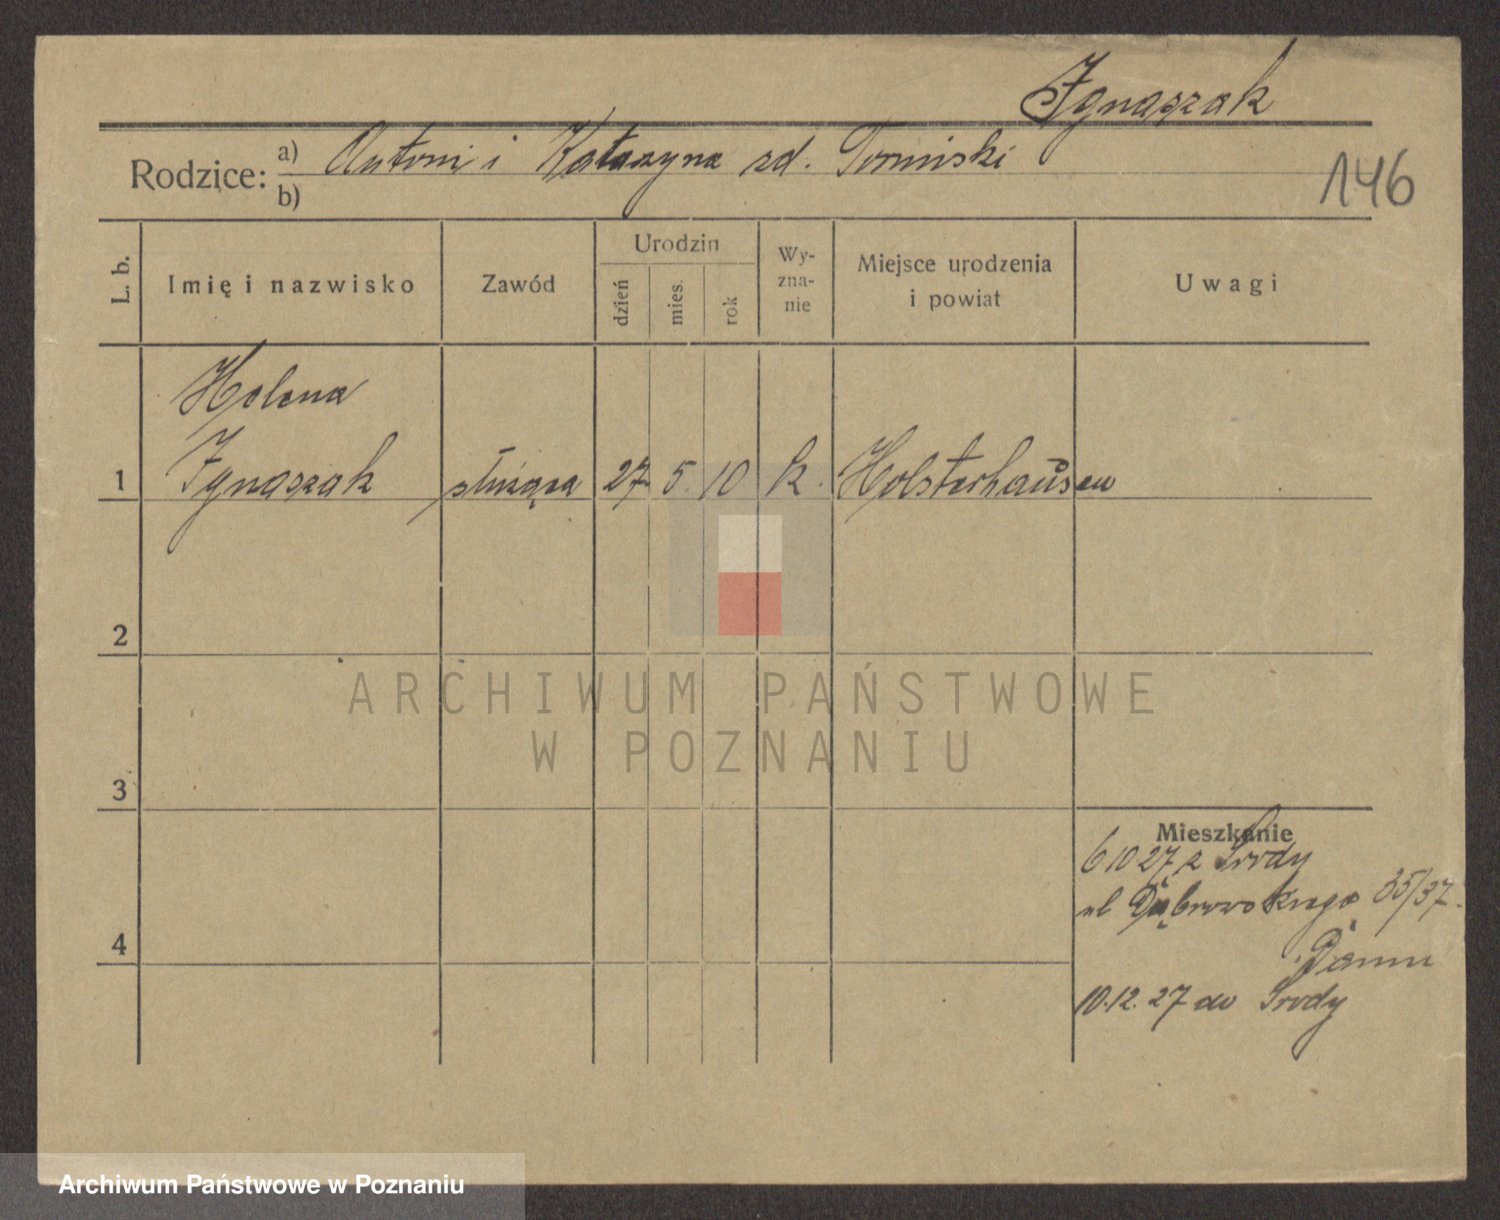 Ignaszak
Rodzice: a) Antoni i Katarzyna zd. Tomiński
b)
146
L. b.
Imię i nazwisko
Zawód
Urodzin
dzień
mies.
rok
Wy-
zna-
nie
Miejsce urodzenia
i powiat
Uwagi
Helena
1 Ignaszak służąca 27. 5. 10 k. Holsterhausen
2
3
4
Mieszkanie
6 10 27 z Środy
ul Dąbrowskiego 35/37.
10.12.27 do Środy
ARCHIWUM PAŃSTWOWE
W POZNANIU
Archiwum Państwowe w Poznaniu